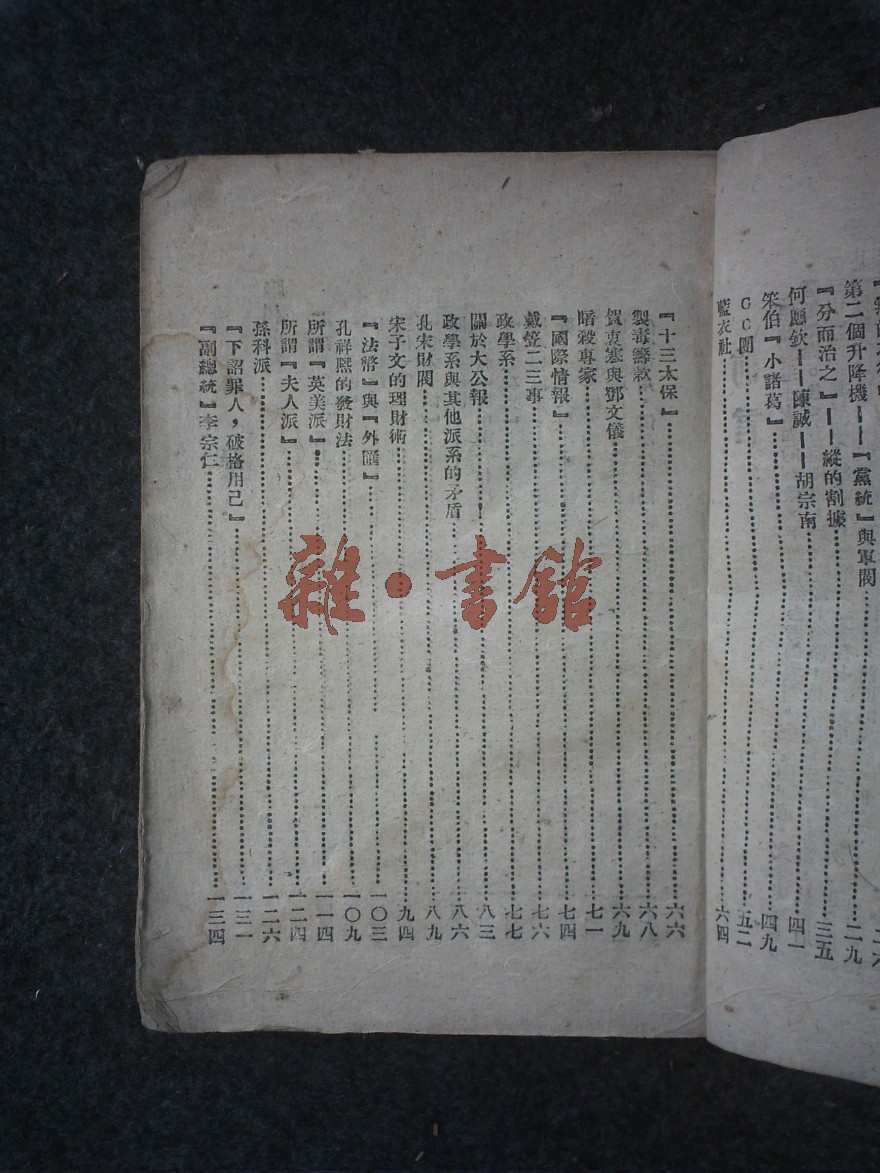 第二個升降機——『黨統』與軍閥…………二九
『分而治之』——縱的割據…………三五
何應欽——陳誠——胡宗南…………四一
笨伯『小諸葛』…………四九
CC團…………五二
藍衣社…………六四
『十三太保』…………六六
製毒籌款…………六八
賀衷寒與鄧文儀…………六九
暗殺專家…………七一
『國際情報』…………七四
戴笠二三事…………七六
政學系…………七七
關於大公報…………八三
政學系與其他派系的矛盾…………八六
孔宋財閥…………八九
宋子文的理財術…………九四
『法幣』與『外匯』…………一〇三
孔祥熙的發財法…………一〇九
所謂『英美派』…………一一四
所謂『夫人派』…………一二四
孫科派…………一二六
『下詔罪人，破格用己』…………一三一
『副總統』李宗仁…………一三四
雜·書館